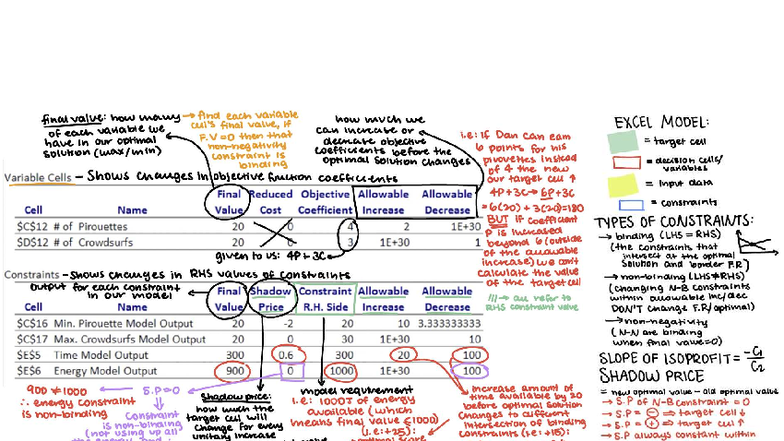 final value: how many
of each variable we
have in our optimal
solution (max/min)
→ find each variable
cell's final value, if
F.V=0 then that
non-negativity
constraint is
binding
how much we
can increase or
decrease objective
coefficients before the
optimal solution changes
i.e: if Dan can earn
6 points for his
pirouettes instead
of 4 the new
our target cell ↑
4P+3C → 6P+3C
=6(20)+3(20)=180
BUT if coefficient
P is increased
beyond 6 (outside
of the allowable
increase) we can't
calculate the value
of the target cell
Variable Cells - Shows changes in objective function coefficients
Final Reduced Objective Allowable Allowable
Cell Name Value Cost Coefficient Increase Decrease
$C$12 # of Pirouettes 20 0 4 2 1E+30
$D$12 # of Crowdsurfs 20 0 3 1E+30 1
given to us: 4P+3C
Constraints - Shows changes in RHS values of constraints
output for each constraint
in our model
/// → all refer to
RHS constraint value
Final Shadow Constraint Allowable Allowable
Cell Name Value Price R.H. Side Increase Decrease
$C$16 Min. Pirouette Model Output 20 -2 20 10 3.333333333
$C$17 Max. Crowdsurfs Model Output 20 0 30 1E+30 10
$E$5 Time Model Output 300 0.6 300 20 100
$E$6 Energy Model Output 900 0 1000 1E+30 100
900 ≠ 1000
∴ energy constraint
is non-binding
S.P=0
Constraint
is non-binding
(not using up all
Shadow price:
how much the
target cell will
change for every
unitary increase
model requirement
i.e: 1000T of energy
available (which
means final value ≤1000)
(i.e:+25):
increase amount of
time available by 20
before optimal solution
changes to different
intersection of binding
constraints (i.e:+15):
EXCEL MODEL:
= target cell
= decision cells/
variables
= input data
= constraints
TYPES OF CONSTRAINTS:
→ binding (LHS = RHS)
(the constraints that
intersect at the optimal
solution and border F.R)
→ non-binding (LHS≠RHS)
(changing N-B constraints
within allowable inc/dec
DON'T change F.R/optimal)
→ non-negativity
(N-N are binding
when final value=0)
SLOPE OF ISOPROFIT = -C1/C2
SHADOW PRICE
= new optimal value - old optimal value
→ S.P of N-B constraint = 0
→ S.P = - ⇒ target cell ↓
→ S.P = + ⇒ target cell ↑
→ S.P always constant within